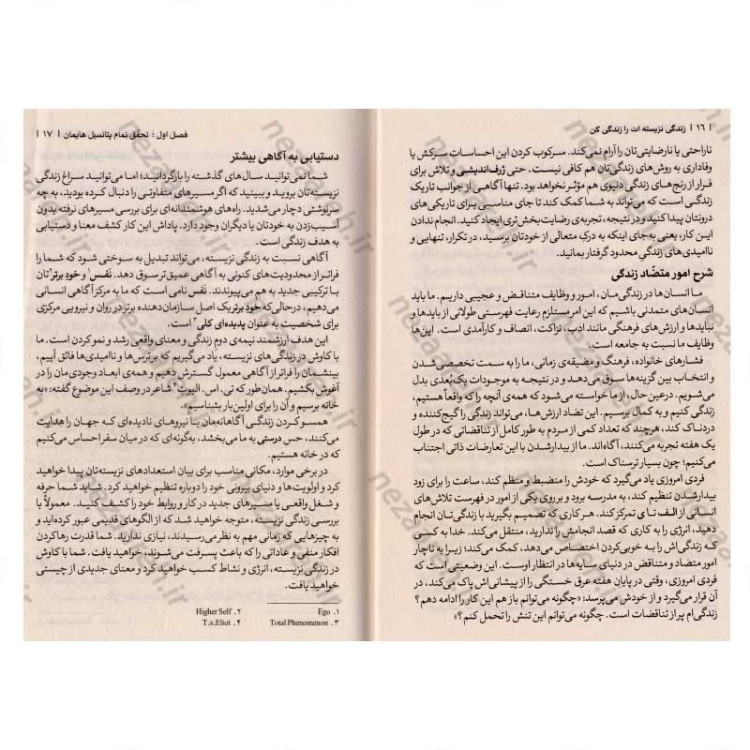 | ۱۶ | زندگی نزیسته ات را زندگی کن
ناراحتی یا نارضایتی‌تان را آرام نمی‌کند. سرکوب کردن این احساسات سرکش یا
وفاداری به روش‌های زندگی‌تان هم کافی نیست. حتی ژرف‌اندیشی و تلاش برای
فرار از رنج‌های زندگی دنیوی هم مؤثر نخواهد بود. تنها آگاهی از جوانب تاریک
زندگی است که می‌تواند به شما کمک کند تا جای مناسبی برای تاریکی‌های
درونتان پیدا کنید و در نتیجه، تجربه‌ی رضایت‌بخش‌تری ایجاد کنید. انجام ندادن
این کار، یعنی به‌جای اینکه به درکِ متعالی از خودتان برسید، در تکرار، تنهایی و
ناامیدی‌های زندگیِ محدود گرفتار بمانید.
شرح امور متضّاد زندگی
ما انسان‌ها در زندگی‌مان، امور و وظایف متناقض و عجیبی داریم. ما باید
انسان‌های متمدنی باشیم که این امر مستلزم رعایت فهرستی طولانی از بایدها و
نبایدها و ارزش‌های فرهنگی مانند ادب، نزاکت، انصاف و کارآمدی است. این‌ها
وظایف ما نسبت به جامعه است.
فشارهای خانواده، فرهنگ و مضیقه‌ی زمانی، ما را به سمت تخصصی‌شدن
و انتخاب بین گزینه‌ها سوق می‌دهد و در نتیجه به موجودات یک‌بُعدی بدل
می‌شویم. درعین‌حال، از ما خواسته می‌شود که همه‌ی آنچه را که واقعاً هستیم،
زندگی کنیم و به کمال برسیم. این تضاد ارزش‌ها، می‌تواند زندگی را گیج‌کننده و
دردناک کند، هرچند که تعداد کمی از مردم به طور کامل از تناقضاتی که در طول
یک هفته تجربه می‌کنند، آگاه‌اند. ما از بیدارشدن با این تعارضات ذاتی اجتناب
می‌کنیم؛ چون بسیار ترسناک است.
فردی امروزی یاد می‌گیرد که خودش را منضبط و منظم کند، ساعت را برای زود
بیدارشدن تنظیم کند، به مدرسه برود و بر روی یکی از امور در فهرست تلاش‌های
انسانی از الف تا ی تمرکز کند. هر کاری که تصمیم بگیرید با زندگی‌تان انجام
دهید، انرژی را به کاری که قصد انجامش را ندارید، منتقل می‌کند. خدا به کسی
که زندگی‌اش را به خوبی‌کردن اختصاص می‌دهد، کمک می‌کند؛ زیرا به ناچار
امور متضاد و متناقض در دنیای سایه‌ها در انتظار اوست. این وضعیتی است که
فردی امروزی، وقتی در پایان هفته عرق خستگی را از پیشانی‌اش پاک می‌کند، در
آن قرار می‌گیرد و از خودش می‌پرسد: «چگونه می‌توانم باز هم این کار را ادامه دهم؟
زندگی‌ام پر از تناقضات است. چگونه می‌توانم این تنش را تحمل کنم؟»
فصل اول : تحقق تمام پتانسیل هایمان | ۱۷ |
دستیابی به آگاهی بیشتر
شما نمی‌توانید سال‌های گذشته را بازگردانید؛ اما می‌توانید سراغ زندگی
نزیسته‌تان بروید و ببینید که اگر مسیرهای متفاوتی را دنبال کرده بودید، به چه
سرنوشتی دچار می‌شدید. راه‌های هوشمندانه‌ای برای بررسی مسیرهای نرفته بدون
آسیب‌زدن به خودتان یا دیگران وجود دارد. پاداش این کار کشف معنا و دستیابی
به هدف زندگی است.
آگاهی نسبت به زندگی نزیسته، می‌تواند تبدیل به سوختی شود که شما را
فراتر از محدودیت‌های کنونی به آگاهی عمیق‌تر سوق دهد. نَفْس۱ و خودِ برتر۲تان
با ترکیبی جدید به هم می‌پیوندند. نَفْس نامی است که ما به مرکز آگاهی انسانی
می‌دهیم، درحالی‌که خودِ برتر یک اصل سازمان‌دهنده برتر در روان و نیرویی مرکزی
برای شخصیت به عنوان پدیده‌ای کلی۳ است.
این هدف ارزشمند نیمه‌ی دوم زندگی و معنای واقعی رشد و نمو کردن است. ما
با کاوش در زندگی‌های نزیسته، یاد می‌گیریم که بر ترس‌ها و ناامیدی‌ها فائق آییم،
بینشمان را فراتر از آگاهی معمول گسترش دهیم و همه‌ی ابعاد وجودی‌مان را در
آغوش بکشیم. همان‌طور که تی. اس. الیوت۴ شاعر در وصف این موضوع گفته: «به
خانه برسیم و آن را برای اولین‌بار بشناسیم».
همسو کردن زندگی آگاهانه‌مان با نیروهای نادیده‌ای که جهان را هدایت
می‌کنند، حس درستی به ما می‌بخشد، به‌گونه‌ای که در میان سفر احساس می‌کنیم
که در خانه هستیم.
در برخی موارد، مکانی مناسب برای بیان استعدادهای نزیسته‌تان پیدا خواهید
کرد و اولویت‌ها و دنیای بیرونی خود را دوباره تنظیم خواهید کرد. شاید شما حرفه
و شغل واقعی یا مسیرهای جدید در کار و روابط خود را کشف کنید. معمولاً با
بررسی زندگی نزیسته، متوجه خواهید شد که از الگوهای قدیمی عبور کرده‌اید و
به چیزهایی که زمانی مهم به نظر می‌رسیدند، نیازی ندارید. شما قدرت رهاکردن
افکار منفی و عاداتی را که باعث پسرفت می‌شوند، خواهید یافت. شما با کاوش
در زندگی نزیسته، انرژی و نشاط کسب خواهید کرد و معنای جدیدی از چیستی
خواهید یافت.
۱. Ego ۲. Higher Self
۳. Total Phenomenon ۴. T.s.Eliot